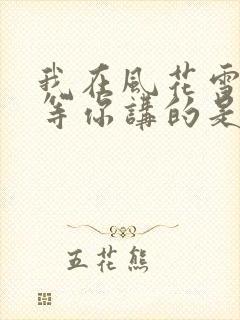 我在風花雪
等你講的是
五花熊